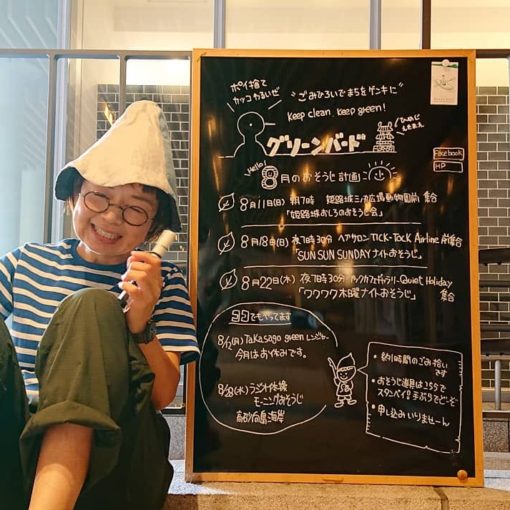 ポイ捨て
カッコわるいぜ
"ごみひろいでまちをゲンキに"
Keep clean, keep green!
グリーンバード
ひめじ
えきまえ
Facebook
HP
Hello!
8月のおそうじ計画
8月11日(日) 朝7時 姫路城三の丸広場動物園前 集合
「姫路城おしろのおそうじ会」
8月18日(日) 夜7時30分 ヘアサロンTICK-TOCK Airline 前集合
「SUN SUN SUNDAY ナイトおそうじ」
8月22日(木) 夜7時30分 Quiet Holiday
集合
「ワクワク木曜ナイトおそうじ」
ココでもやってます
Takasago green
今月はお休みです。
8/28(水) ラジオ体操
モーニングおそうじ
高砂向島海岸
・約1時間のごみ拾い
です
・おそうじ道具はコチラで
スタンバイ!手ぶらでどーぞ
・申し込みいりませーん